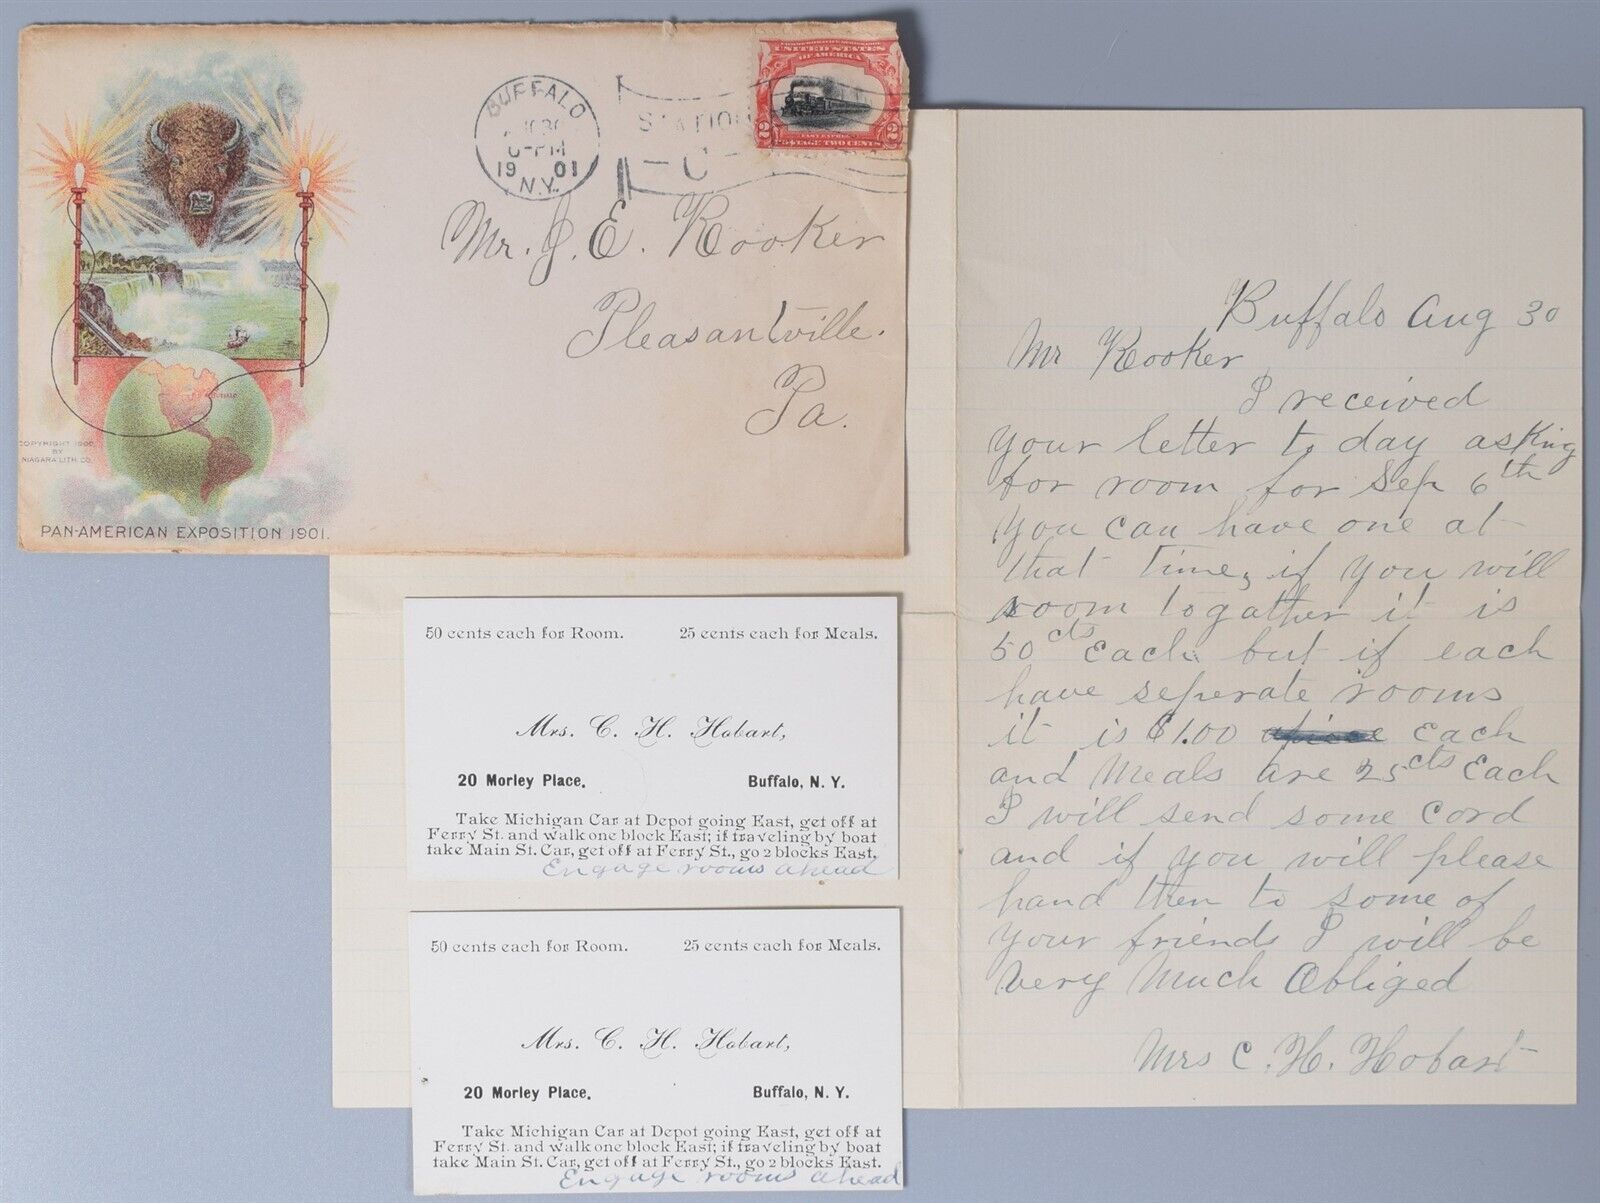 BUFFALO
AUG 30
6-PM
1901
N.Y.
STATION
C
COMMEMORATIVE SERIES 1901
UNITED STATES
OF AMERICA
2 2
FAST EXPRESS
POSTAGE TWO CENTS
Mr. J. E. Kooker
Pleasantville.
Pa.
COPYRIGHT 1900,
BY
NIAGARA LITH. CO.
PAN-AMERICAN EXPOSITION 1901.
Buffalo Aug 30
Mr Kooker
I received
your letter to day asking
for room for Sep 6th
you can have one at
that time, if you will
room togather it is
50 cts Each but if each
have seperate rooms
it is $1.00 apiece Each
and Meals are 25 cts Each
I will send some Cord
and if you will please
hand then to some of
your friends I will be
very Much Obliged
Mrs C. H. Hobart
50 cents each for Room. 25 cents each for Meals.
Mrs. C. H. Hobart,
20 Morley Place, Buffalo, N. Y.
Take Michigan Car at Depot going East, get off at
Ferry St. and walk one block East; if traveling by boat
take Main St. Car, get off at Ferry St., go 2 blocks East.
Engage rooms ahead
50 cents each for Room. 25 cents each for Meals.
Mrs. C. H. Hobart,
20 Morley Place, Buffalo, N. Y.
Take Michigan Car at Depot going East, get off at
Ferry St. and walk one block East; if traveling by boat
take Main St. Car, get off at Ferry St., go 2 blocks East.
Engage rooms ahead